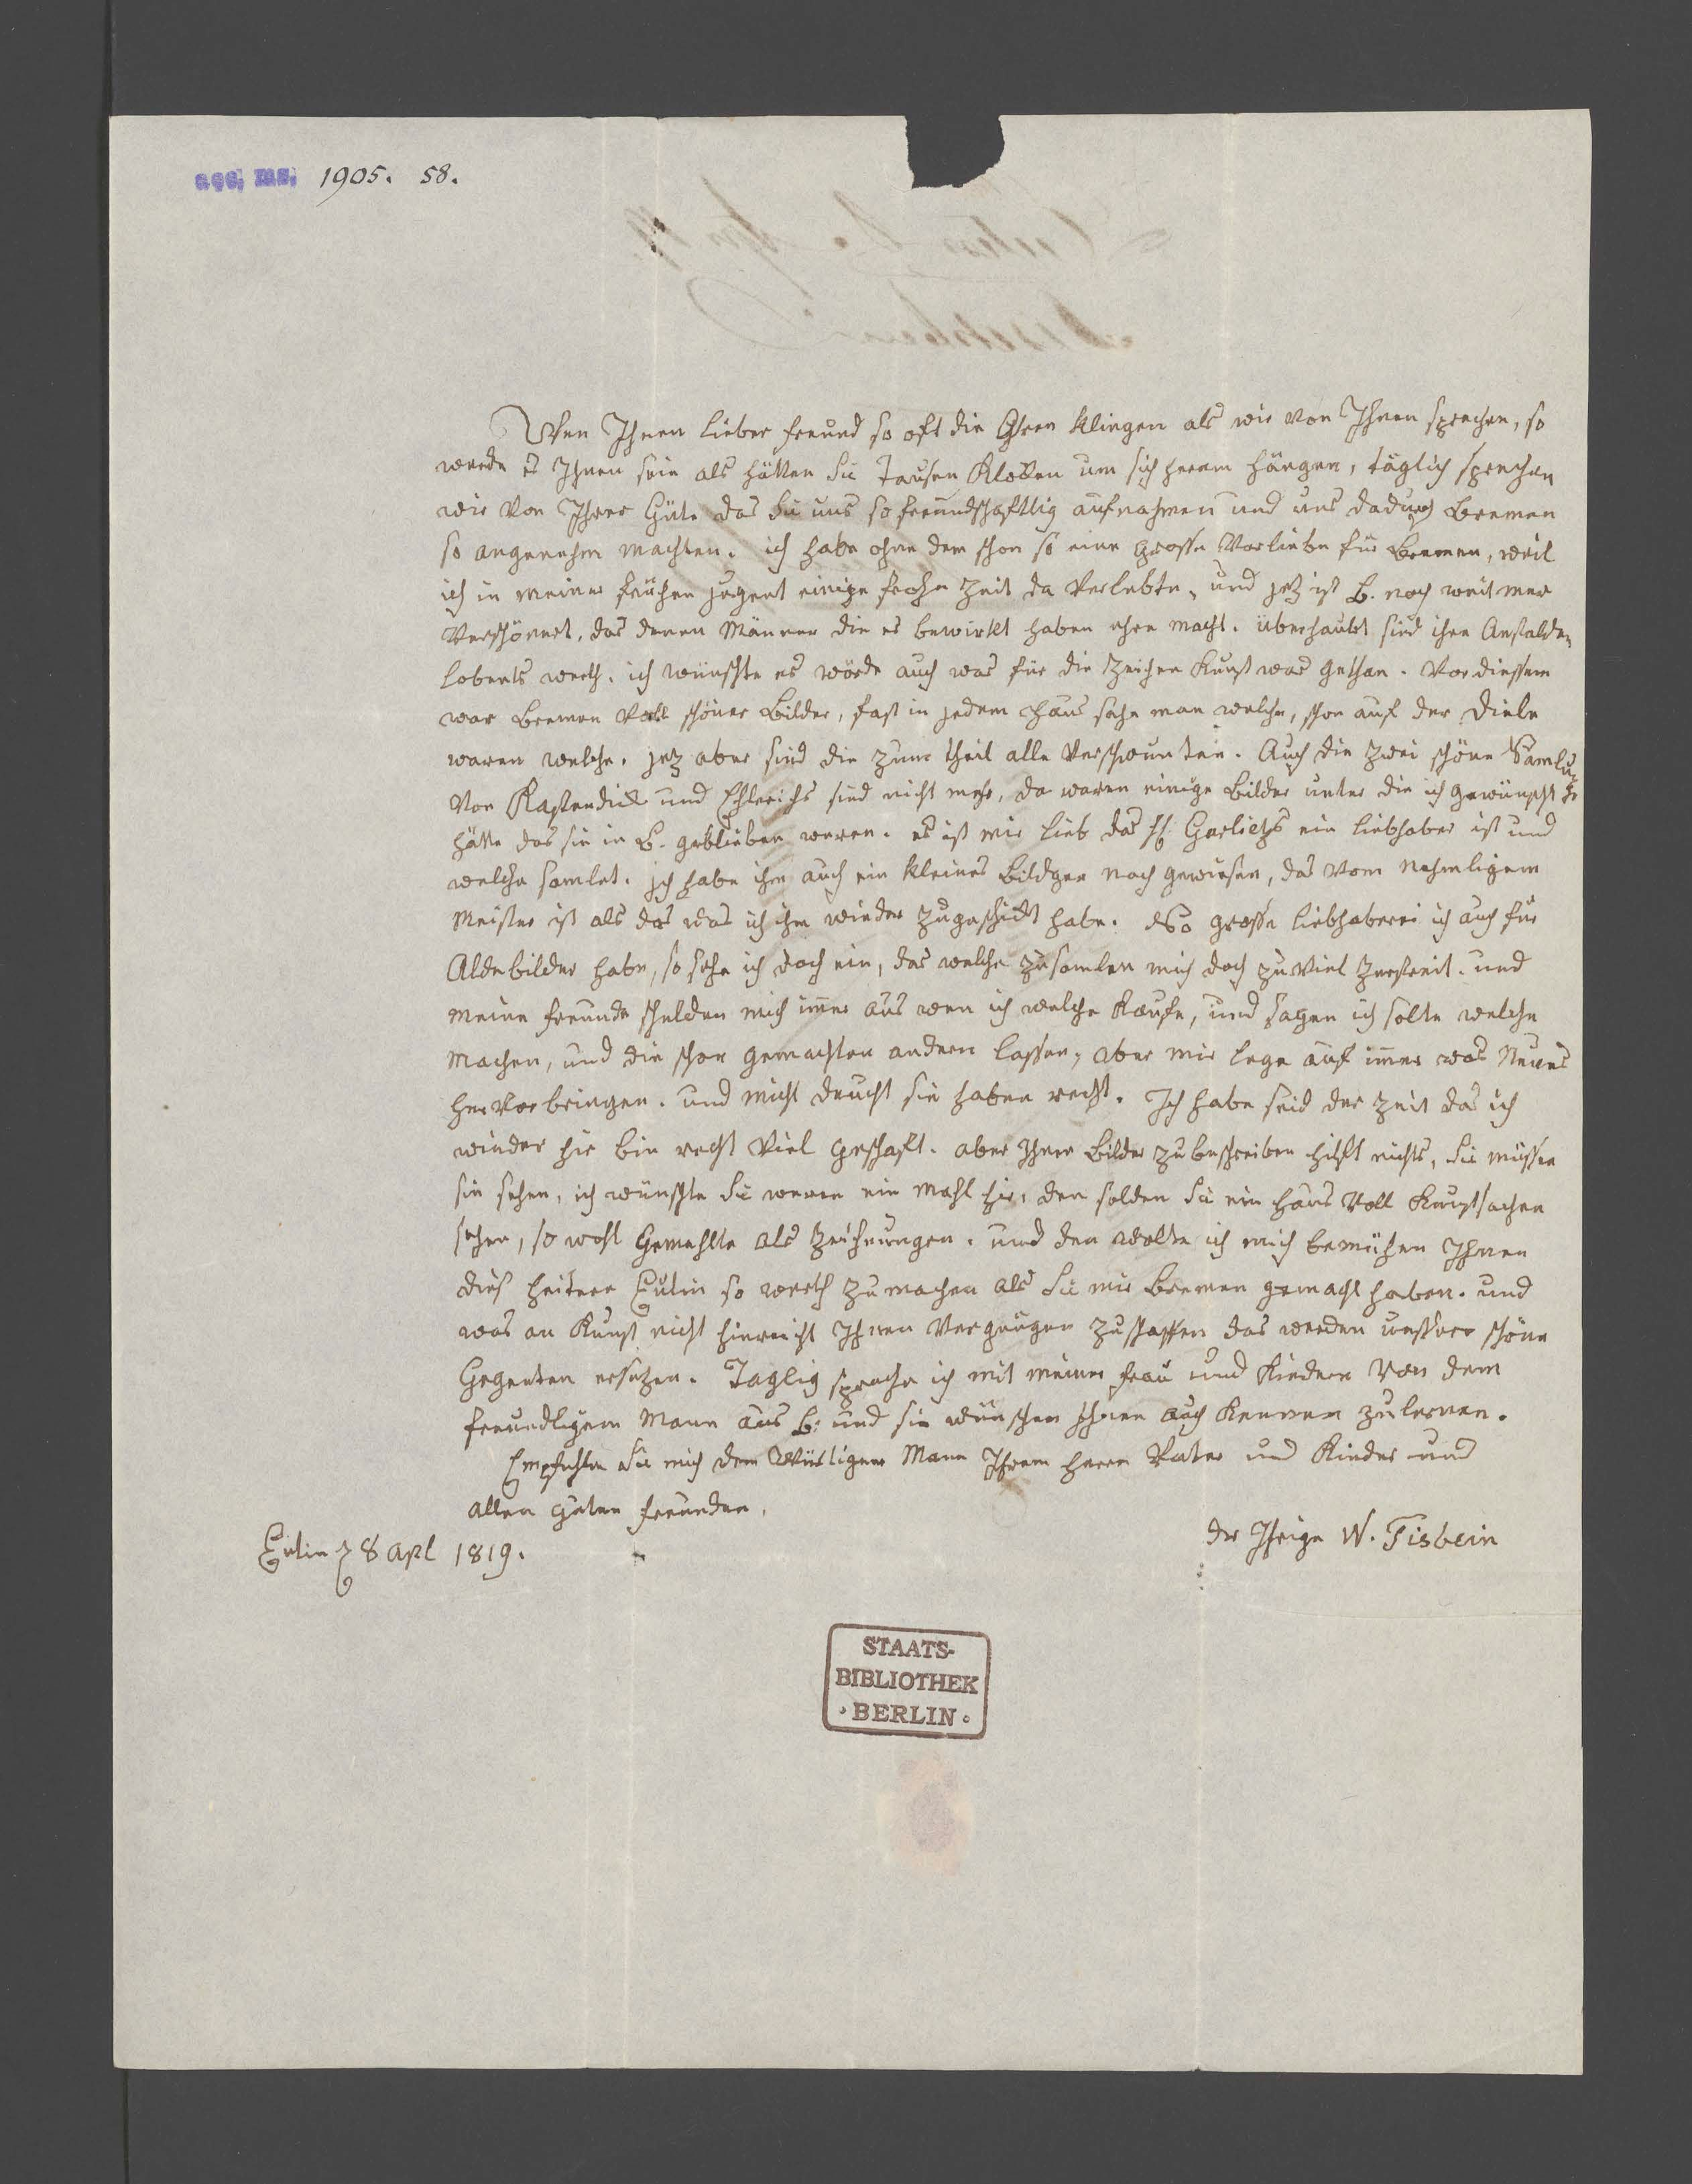 acc. ms. 1905. 58.
Wen Ihnen lieber freund so oft die Ohren klingen als wir von Ihnen sprechen, so
werde es Ihnen sein als hätten Sie tausen Klokken um sich herum hängen, täglich sprechen
wir von Ihrer Güte das Sie uns so freundschaftlig aufnahmen und uns dadurch Bremen
so angenehm machten. ich habe ohne dem schon so eine grosse Vorliebe für Bremen, weil
ich in meiner frühen jugent einige frohe Zeit da verlebte, und jetz ist B. noch weit mer
verschönert, das denen Männer die es bewirkt haben ehre macht. überhaubt sind ihre Anstalden
lobents werth. ich wünschte es wörde auch was für die Zeichen Kunst was gethan. Vor diessem
war Bremen voll schöner Bilder, fast in jedem Haus sahe man welche, schon auf der Diele
waren welche. jetz aber sind die zum theil alle verschwunten. Auch die zwei schöne Samlungen
von Kastendick und Ehlerichs sind nicht mehr, da waren einige Bilder unter die ich gewünscht
hätte das sie in B. geblieben weren. es ist mir lieb das H. Garlichs ein liebhaber ist und
welche samlet. Ich habe ihm auch ein kleines Bildgen noch gewiesen, das vom nehmligem
Meister ist als das was ich ihm wieder zugeschickt habe. So grosse liebhaberei ich auch für
Aldebilder habe, so sehe ich doch ein, das welche zu samlen mich doch zu viel zerstreit. und
meine freunde schelden mich imer aus wen ich welche Kaufe, und sagen ich solte welche
machen, und die schon gemachten andern lassen, aber mir lege auf imer was Neues
hervor bringen. und micht deucht sie haben recht. Ich habe seid der Zeit das ich
wieder hir bin recht viel geschaft. aber Ihnen Bilder zu beschreiben hilft nichts, Sie müssen
sie sehen, ich wünschte Sie weren ein mahl hir, den solden Sie ein Haus voll Kunstsachen
sehen, so wohl Gemehlte als Zeichnungen. und den wolte ich mich bemühen Ihnen
dies heitere Eutin so werth zu machen als Sie mir Bremen gemacht haben. und
was an Kunst nicht hinreicht Ihnen Vergnügen zu schaffen das werden unssere schöne
Gegenten ersetzen. Taglig spreche ich mit meiner frau und Kindern von dem
freundligem Mann aus B. und sie wünschen Ihnen auch kennen zu lernen.
Empfehlen Sie mich dem würtigem Mann Ihrem Herrn Vater und Kinder und
allen guten freunden.
der Ihrige W. Tisbein
Eutin 8 Apl 1819.
STAATS-
BIBLIOTHEK
BERLIN